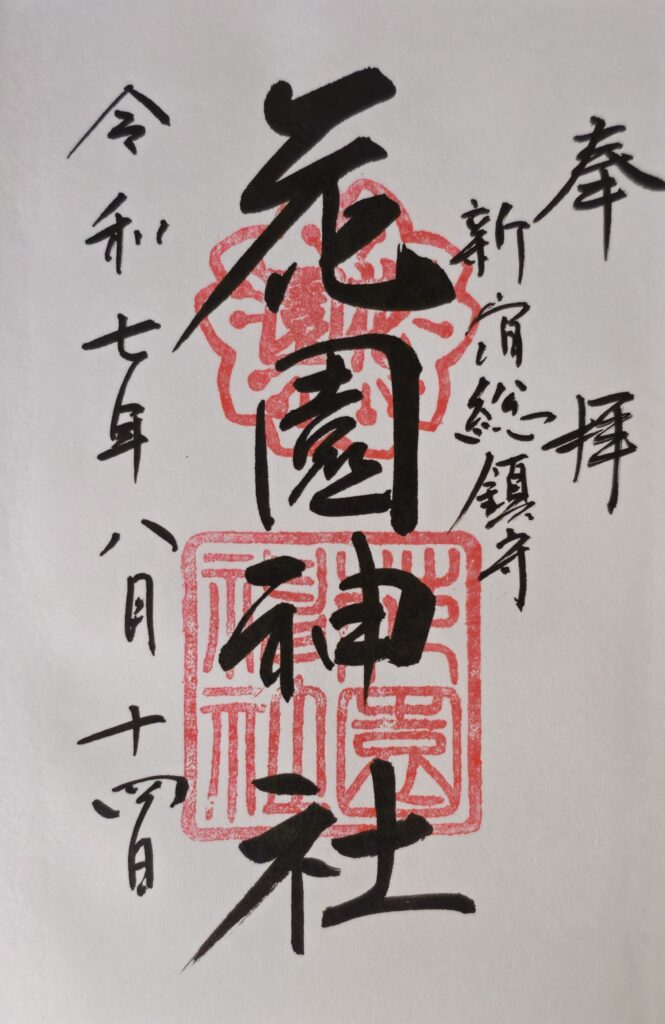 奉拝
新宿総鎮守
花園神社
花園神社
令和七年八月十四日